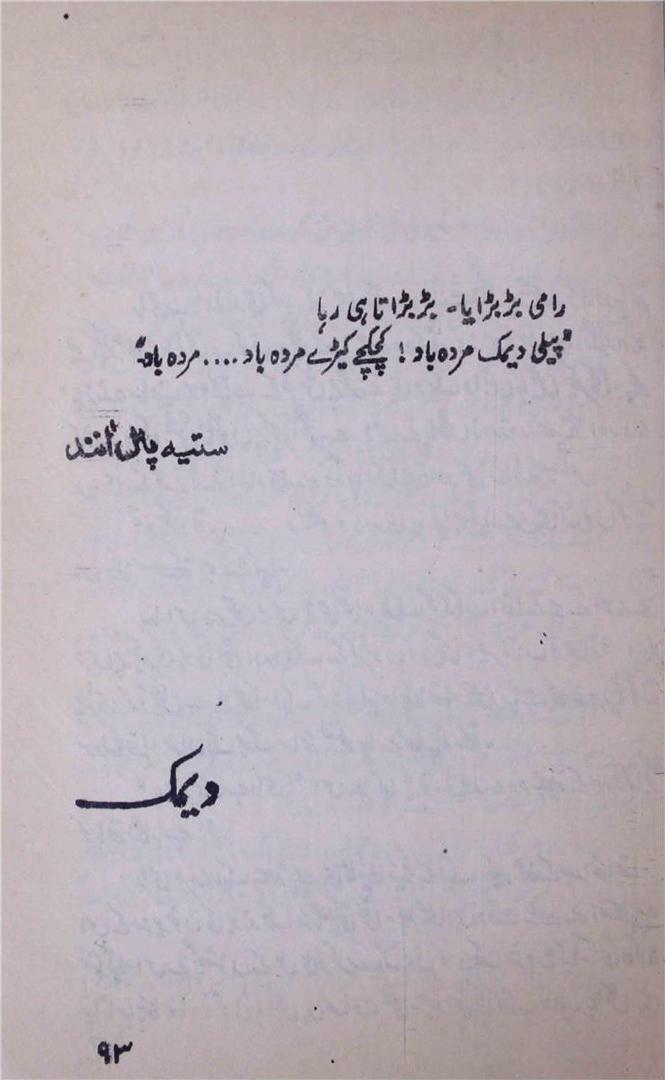 رامی بڑبڑایا۔ بڑبڑاتا ہی رہا
"پیلی دیمک مردہ باد! کچکچے کیڑے مردہ باد .... مردہ باد"
ستیہ پال آنند
دیمک
۹۳